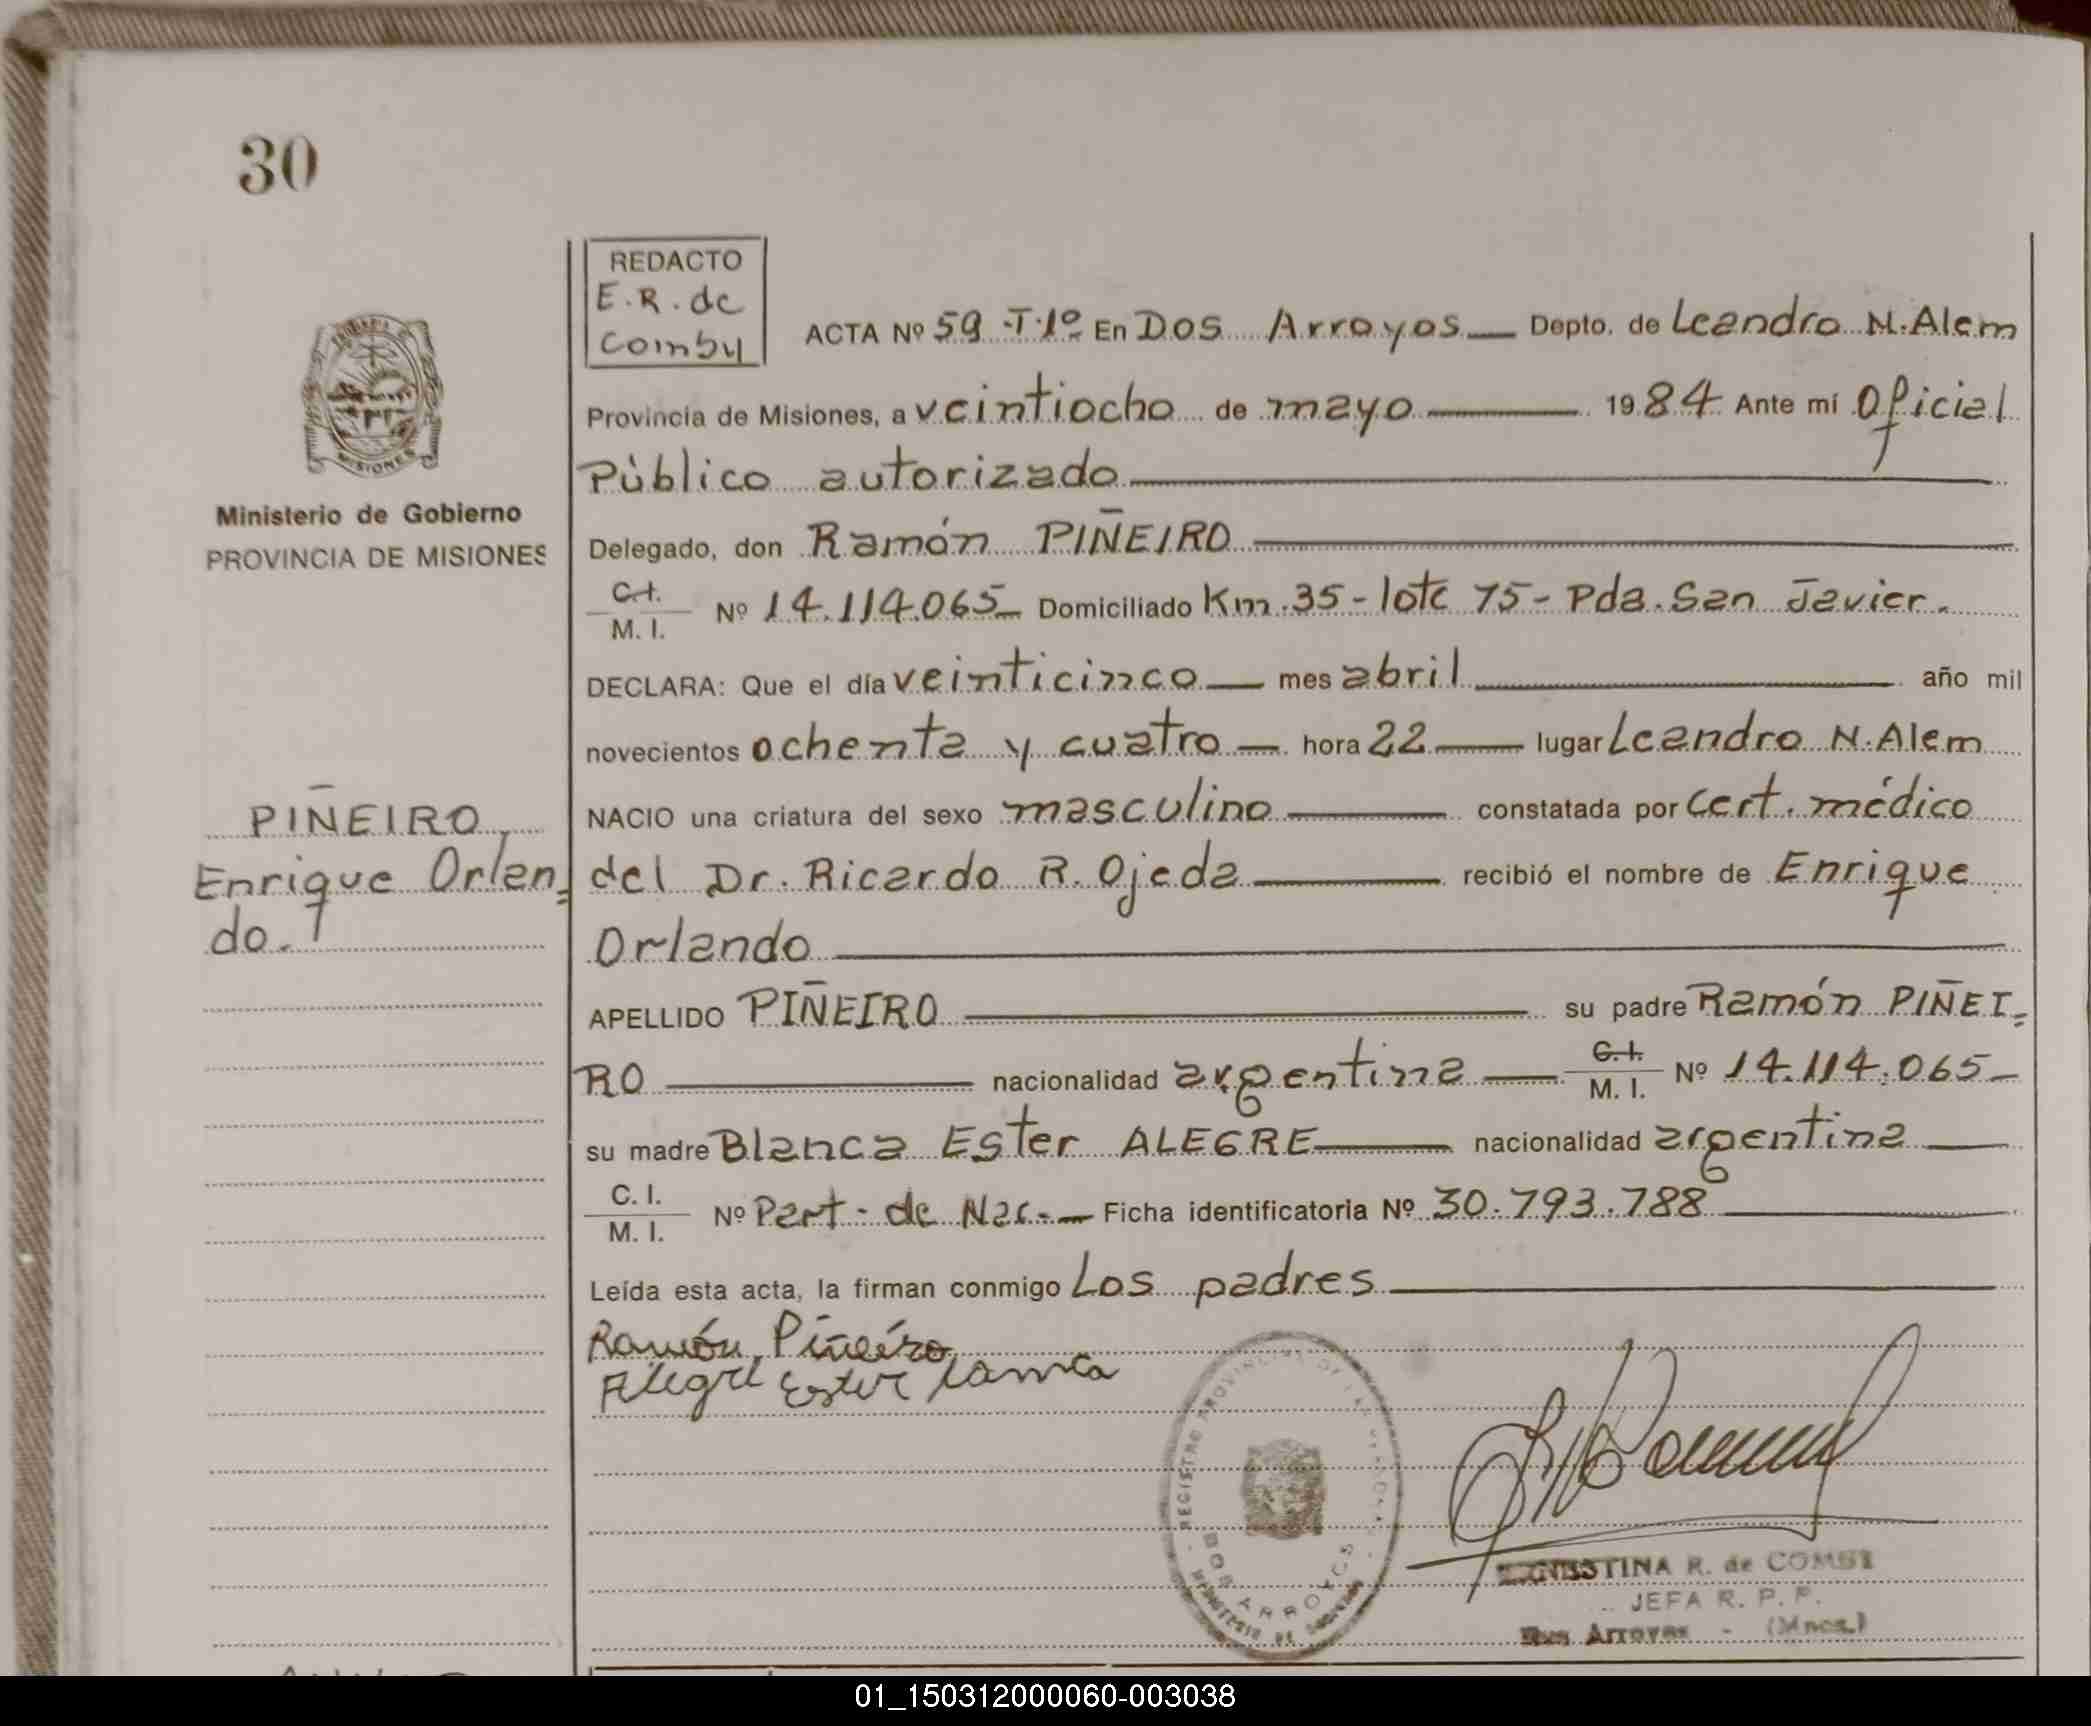 30
REDACTO
E.R. de
Comby
ACTA Nº 59 -T.1º En Dos Arroyos Depto. de Leandro N. Alem
Provincia de Misiones, a veintiocho de mayo 1984 Ante mí Oficial
Público autorizado
Delegado, don Ramón PIÑEIRO
C.I.
M. I. Nº 14.114.065 Domiciliado Km.35-lote 75-Pda. San Javier.
DECLARA: Que el día veinticinco mes abril año mil
novecientos ochenta y cuatro hora 22 lugar Leandro N. Alem
NACIO una criatura del sexo masculino constatada por Cert. médico
del Dr. Ricardo R. Ojeda recibió el nombre de Enrique
Orlando
APELLIDO PIÑEIRO su padre Ramón PIÑEI=
RO nacionalidad argentina C.I. M. I. Nº 14.114.065
su madre Blanca Ester ALEGRE nacionalidad argentina
C. I.
M. I. Nº Part. de Nac. Ficha identificatoria Nº 30.793.788
Leída esta acta, la firman conmigo Los padres
Ramón Piñeiro
Alegre Ester
MISIONES
Ministerio de Gobierno
PROVINCIA DE MISIONES
PIÑEIRO,
Enrique Orlan=
do.
REGISTRO PROVINCIAL DE LAS PERSONAS
DOS ARROYOS
MINISTERIO DE GOBIERNO
R. de COMBI
JEFA R. P. P.
Dos Arroyos - (Mnes.)
01_150312000060-003038